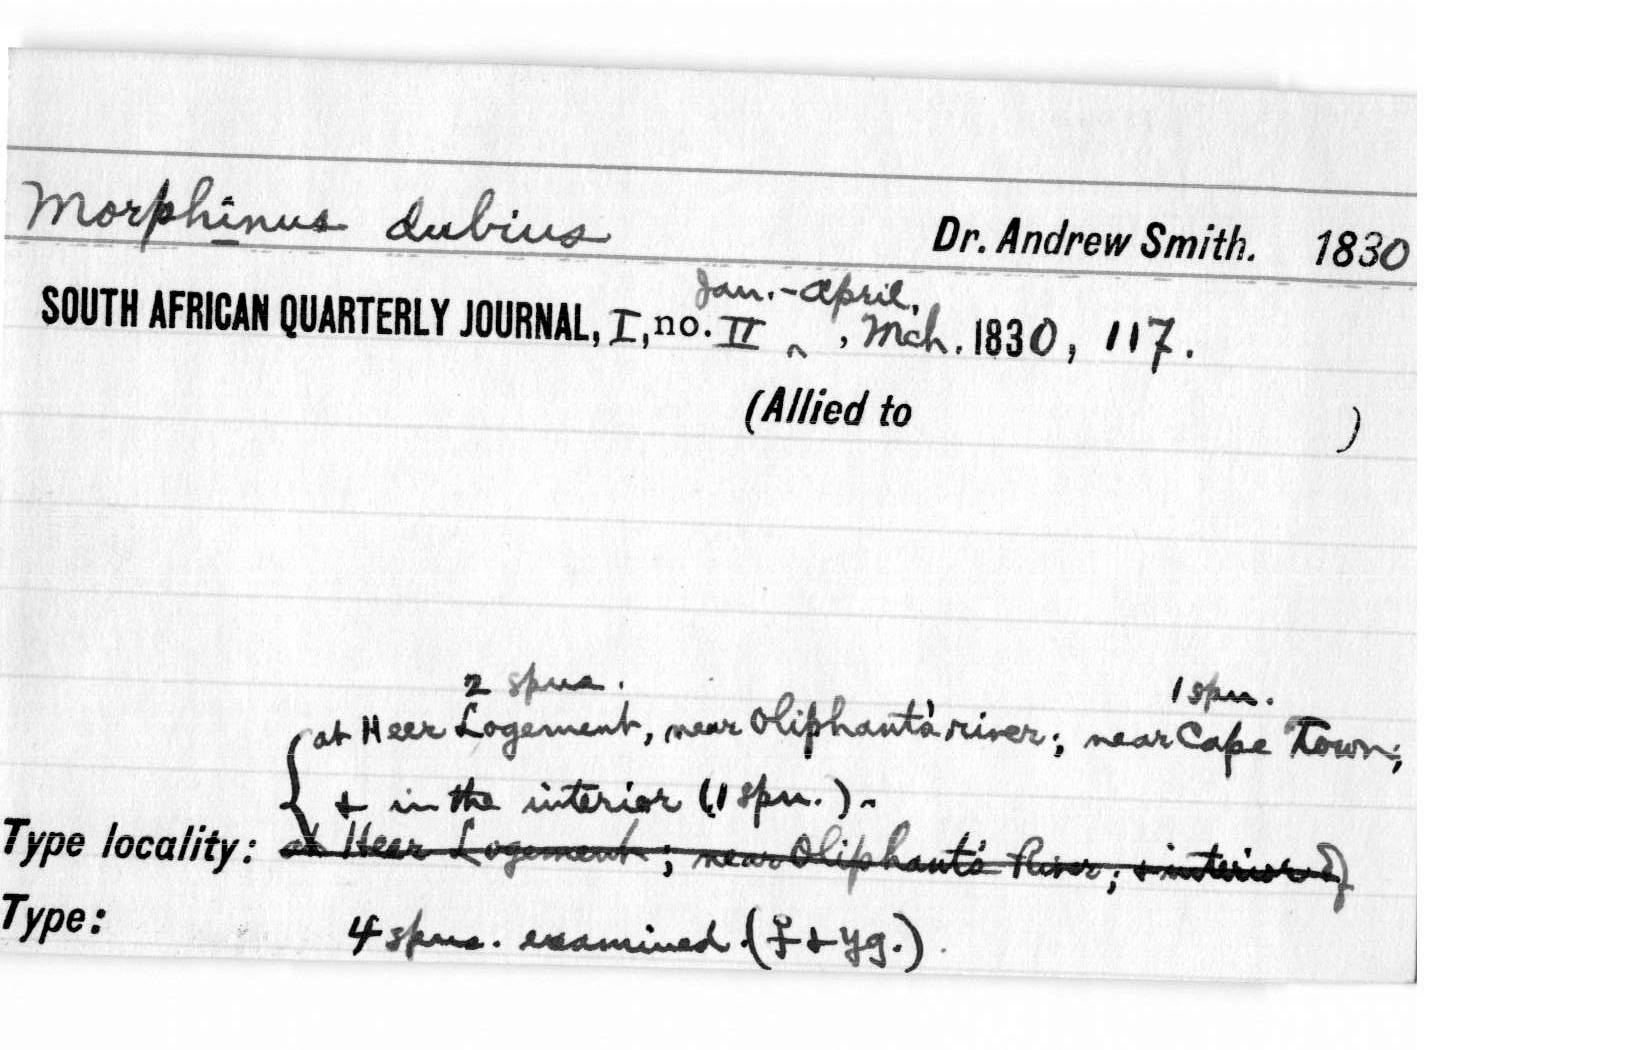 Morphinus dubius Dr. Andrew Smith. 1830
Jan.-April,
SOUTH AFRICAN QUARTERLY JOURNAL, I, no. II ‸ , Mch. 1830, 117.
(Allied to )
2 spns. 1 spn.
at Heer Logement, near Oliphant's river; near Cape Town;
& in the interior (1 spn.).
Type locality: at Heer Logement; near Oliphant's River; & interior of
Type: 4 spns. examined (♀ & yg.).